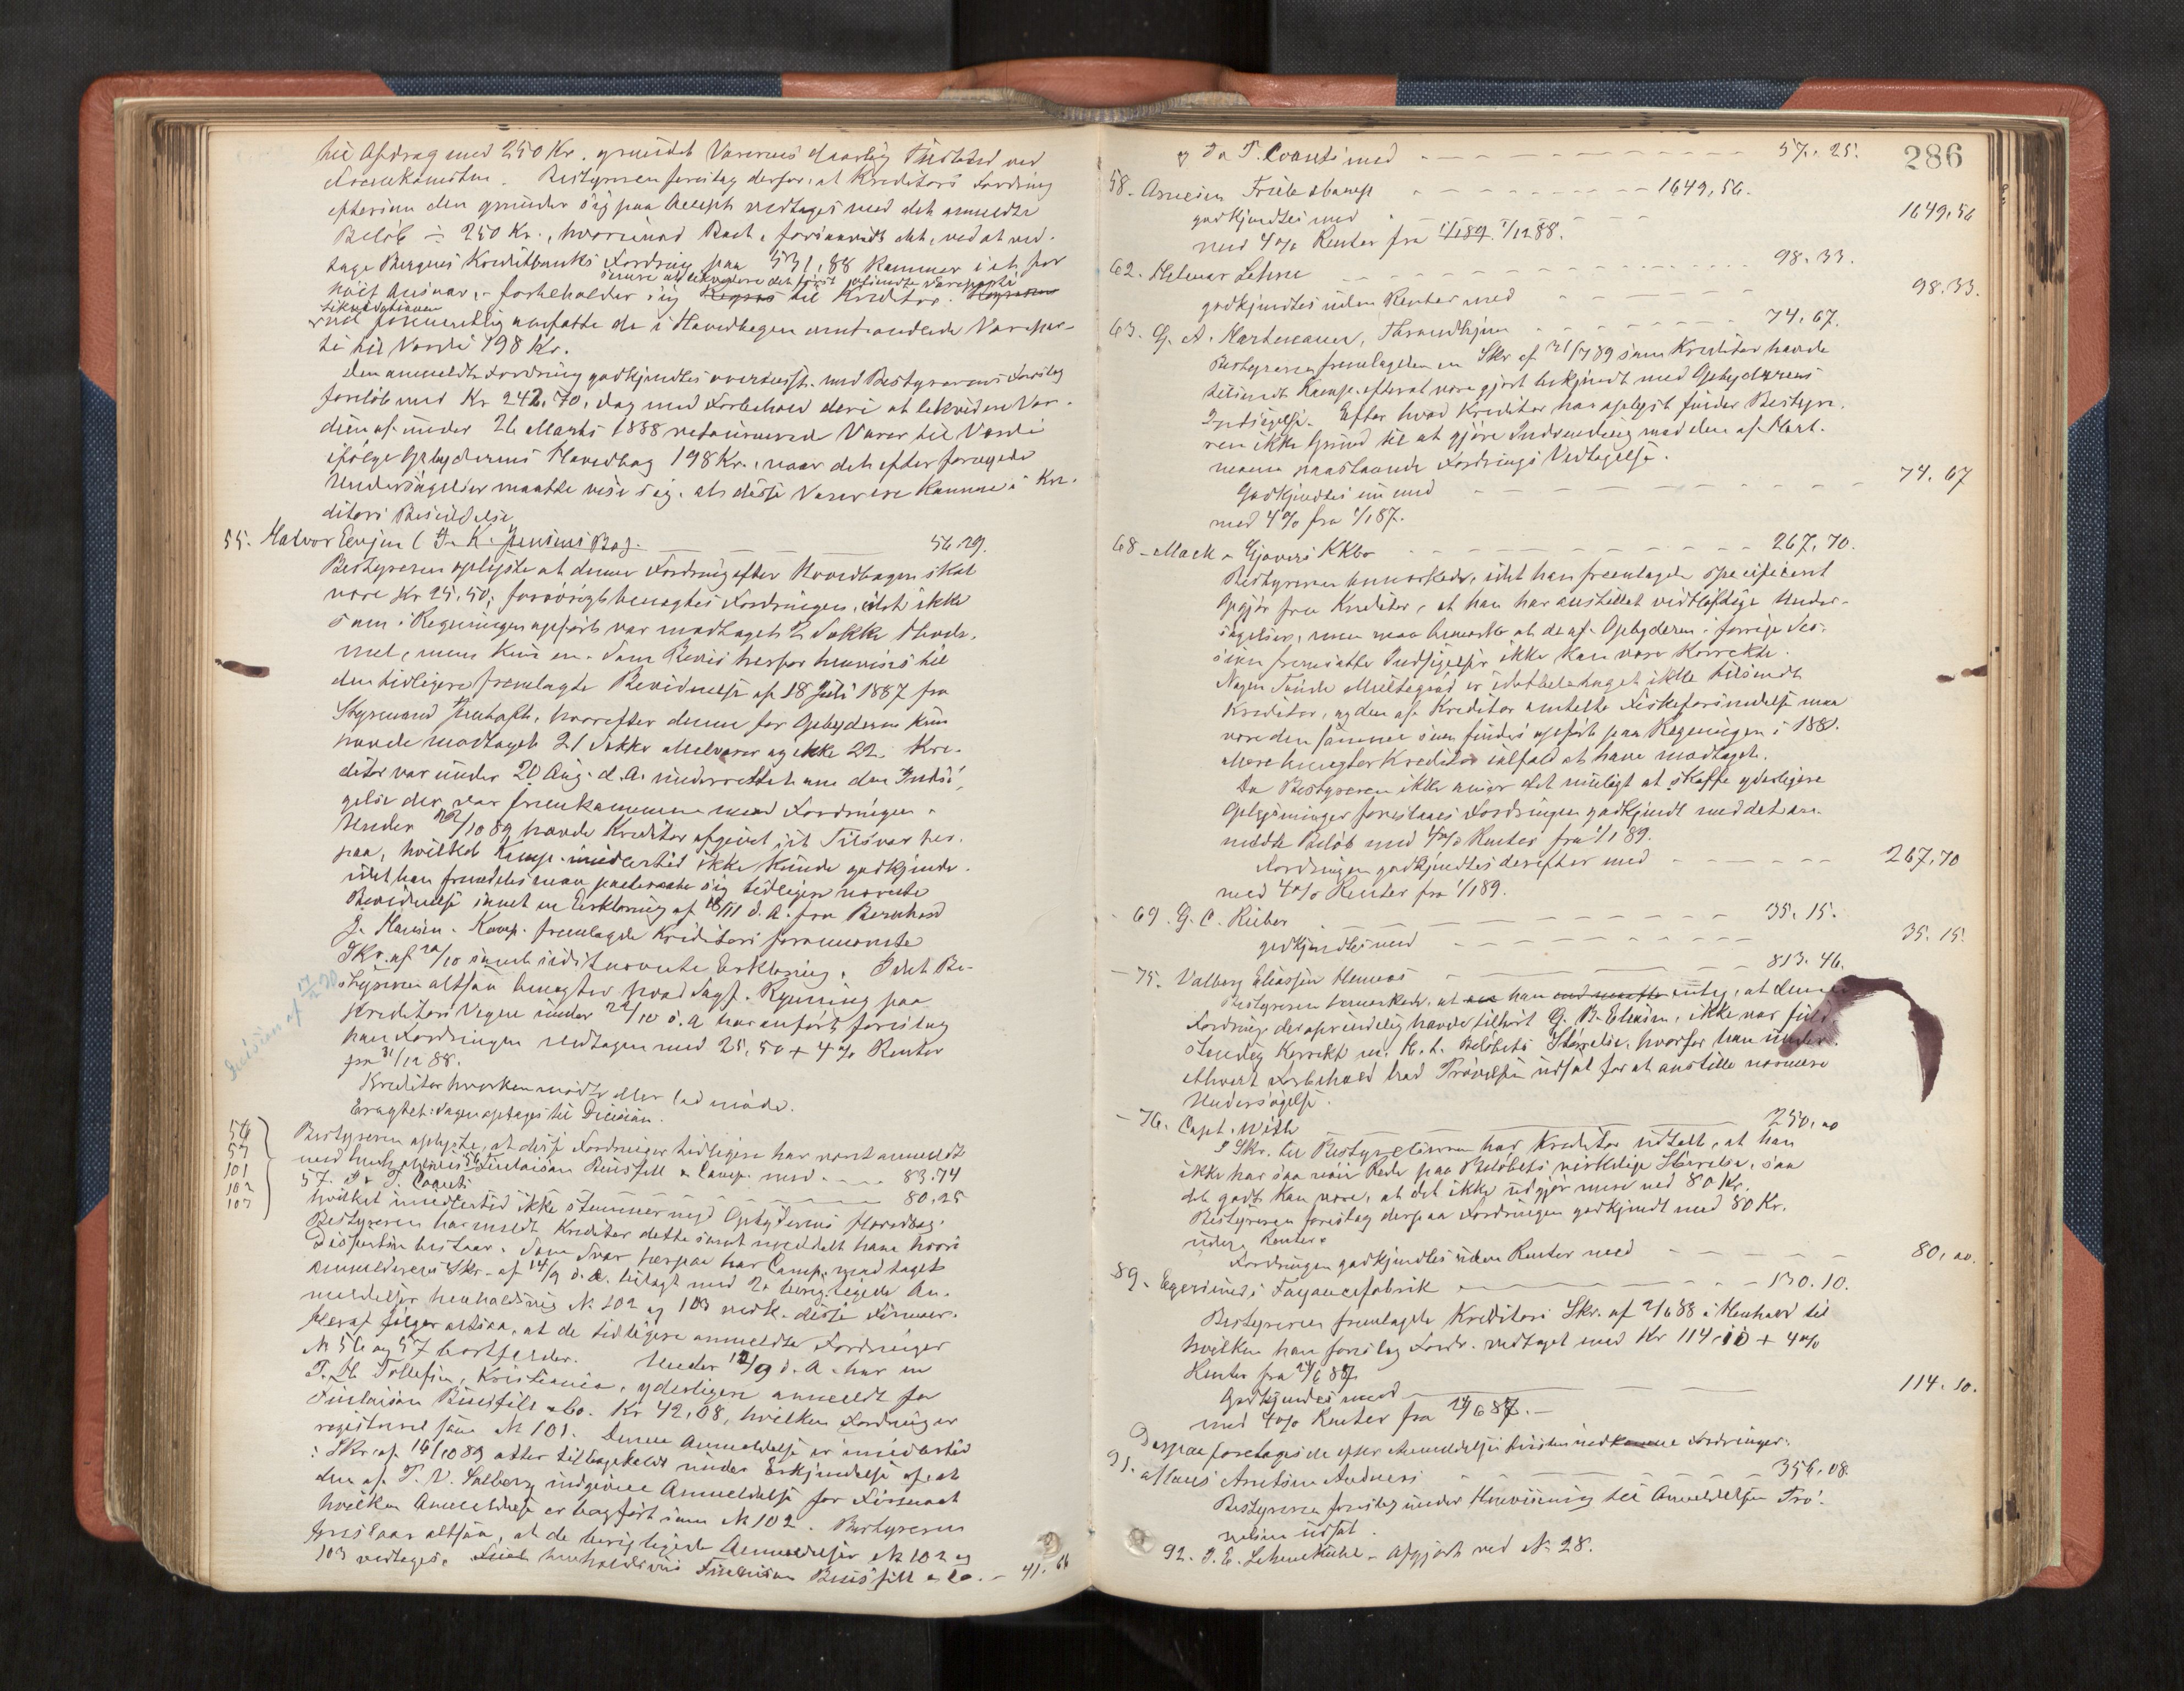 til Afdrag med 250 Kr. grundet Varernes daarlig Tilstand ved
Fremkomsten. Bestyreren foreslog derfor, at Kreditors Fordring
eftersom den grunder sig paa Accept vedtages med det anmeldte
Beløb ÷ 250 Kr., hvorimod Boet, forsaavidt det, ved at ved-
tage Bergens Kreditbanks Fordring paa 531,88 kommer i et for
senere at likvidere det først tilsendte Vareparti
høit Ansvar, forbeholder sig Regres til Kreditor. Regressen
Likvidationen
vil formentlig omfatte de i Hovedbogen omhandlede Varepar-
ti til Værdi 198 Kr.
Den anmeldte Fordring godkjendtes overensst. med Bestyrerens Forslag
foreløb med Kr 242,70, dog med Forbehold deri at likvidere Vær-
dien af under 26 Marts 1888 retournerede Varer til Værdi
ifølge Opbyderens Hovedbog 198 Kr., naar det efter foretagne
Undersøgelser maatte vise sig, at disse Varer ere komne i Kre-
ditors Besiddelse
55. Halvor Eenjen (I. K. Jensens Bo). 56.29.
Bestyreren oplyste at denne Fordring efter Hovedbogen skal
være Kr 25,50; forøvrigt benegtes Fordringen, idet ikke
som i Regningen opført var modtaget 2 Sække
mel, men kun en. Som Bevis herfor henvises til
den tidligere fremlagte Bevidnelse af 18 Juli 1887 fra
Styrmand, hvorefter denne for Opbyderen kun
havde modtaget 21 Sække Melvarer og ikke 22. Kre-
ditor var under 20 Aug. d. A. underrettet om den Indsi-
gelse der var fremkommen mod Fordringen.
Under 22/10 89 havde Kreditor afgivet sit Tilsvar her-
paa, hvilket Kamp imidlertid ikke kunde godkjende.
idet han fremdeles maa paaberaabe sig tidligere nævnte
Bevidnelse samt en Erklæring af 18/11 d. A. fra Bernhard
J. Hansen. Kamp. fremlagde Kreditors foromnævnte
Skr. af 22/10 samt sidstnævnte Erklæring. Idet Be-
styreren altsaa benegter hvad Sagf. Rynning paa
Kreditors Vegne under 22/10 d. A har anført foreslog
han Fordringen vedtagen med 25,50 + 4 % Renter
fra 31/12 88.
Decision af 17/2 90
Kreditor hverken mødte eller lod møde.
Eragtet: Sagen optages til Decision.
56
57
101
102
103
Bestyreren oplyste, at disse Fordringer tidligere har været anmeldt
med henholdsvis 56 Finlaison Bousfill & Comp. med 83.74
57. I & T. Coats 80,25
hvilket imidlertid ikke stemmer med Opbyderens Hovedbog.
Bestyreren har meldt Kreditor dette samt meddelt ham hvori
Differentsen bestaar. Som Svar herpaa har Comp. modtaget
Anmelderens Skr. af 14/9 d. A. bilagt med 2 berigtigede An-
meldelser henholdsvis No 102 og 103 vedk. disse Firmaer.
Heraf følger altsaa, at de tidligere anmeldte Fordringer
No 56 og 57 bortfalder. Under 12/9 d. A. har en
T. H. Tollefsen, Kristiania, yderligere anmeldt for
Finlaison Bousfill & Co. Kr 42,08, hvilken Fordring er
registreret som No 101. Denne Anmeldelse er imidlertid
i Skr. af 16/10 89 atter tilbagekaldt under Erkjendelse af, at
den af T. V. Salberg indgivne Anmeldelse for Firmaet
hvilken Anmeldelse er bogført som No 102. Bestyreren
foreslaar altsaa, at de berigtigede Anmeldelser No 102 og
103 vedtages. henholdsvis Finlaison Bousfill & Co. 41.66
286
og I & T. Coats med 57. 25.
58. Arnesen Friele & Comp 1649,56.
godkjendtes med 1649,56
med 4 % Renter fra 1/1 89. 1/12 88.
62. Helmer Lehne 98.33.
godkjendtes uden Renter med 98.33.
63. G. A. Hartmann, Throndhjem 74,67.
Bestyreren fremlagde en Skr af 31/7 89 som Kreditor havde
tilsendt Kamp. efter at være gjort bekjendt med Opbyderens
Indsigelse. Efter hvad Kreditor har oplyst finder Bestyre-
ren ikke Grund til at gjøre Indvending mod den af Hart-
mann paastaaede Fordrings Vedtagelse.
Godkjendtes nu med 74,67
med 4 % fra 1/1 87.
68. Mack & Gjævers KKbo 267,70.
Bestyreren bemærkede, idet han fremlagde specificeret
Opgjør fra Kreditor, at han har anstillet vidtløftige Under-
søgelser, men maa bemærke at de af Opbyderen i forrige Ses-
sion fremsatte Indsigelser ikke kan være korrekte.
Nogen Tønde Multegrød er idetheletaget ikke tilsendt
Kreditor, og den af Kreditor omtalte Fiskeforsendelse maa
være den samme som findes opført paa Regningen i 188.
Mere benegter Kreditor ialfald at have modtaget.
Da Bestyreren ikke anser det muligt at skaffe yderligere
Oplysninger foreslaaes Fordringen godkjendt med det an-
meldte Beløb med 4 % Renter fra 1/1 89.
Fordringen godkjendtes derefter med 267,70
med 4 % Renter fra 1/1 89.
69. G. C. Rieber 35. 15.
godkjendtes med 35. 15.
75. Valborg Eliassen Hennæs 813. 46.
Bestyreren bemærkede, at han antog, at denne
Fordring der oprindelig havde tilhørt G. B. Eliasen, ikke var fuld-
stændig korrekt m. H. t. Beløbets Størrelse, hvorfor han under
ethvert Forbehold bad Prøvelsen udsat for at anstille nærmere
Undersøgelse.
76. Capt. With 250,00
I Skr. til Bestyrelsen har Kreditor udtalt, at han
ikke har saa nøie Rede paa Beløbets virkelige Størrelse, saa
det godt kan være, at det ikke udgjør mere end 80 Kr.
Bestyreren foreslog derpaa Fordringen godkjendt med 80 Kr.
uden Renter.
Fordringen godkjendtes uden Renter med 80,00.
89. Egersunds Fayancefabrik 130.10.
Bestyreren fremlagde Kreditors Skr. af 2/6 88 i Henhold til
hvilken han foreslog Fordr. vedtaget med Kr 114,10 + 4 %
Renter fra 24/6 87
Godkjendes med 114.10.
med 4 % Renter fra 24/6 87.
Derpaa foretoges de efter Anmeldelsesfristen indkomne Fordringer.
91. Arntsen Andenes 356,08.
Bestyreren foreslog under Henvisning til Anmeldelsen Prø-
velsen udsat.
92. I. E. Lehmkuhl - Afgjort ved No 28.